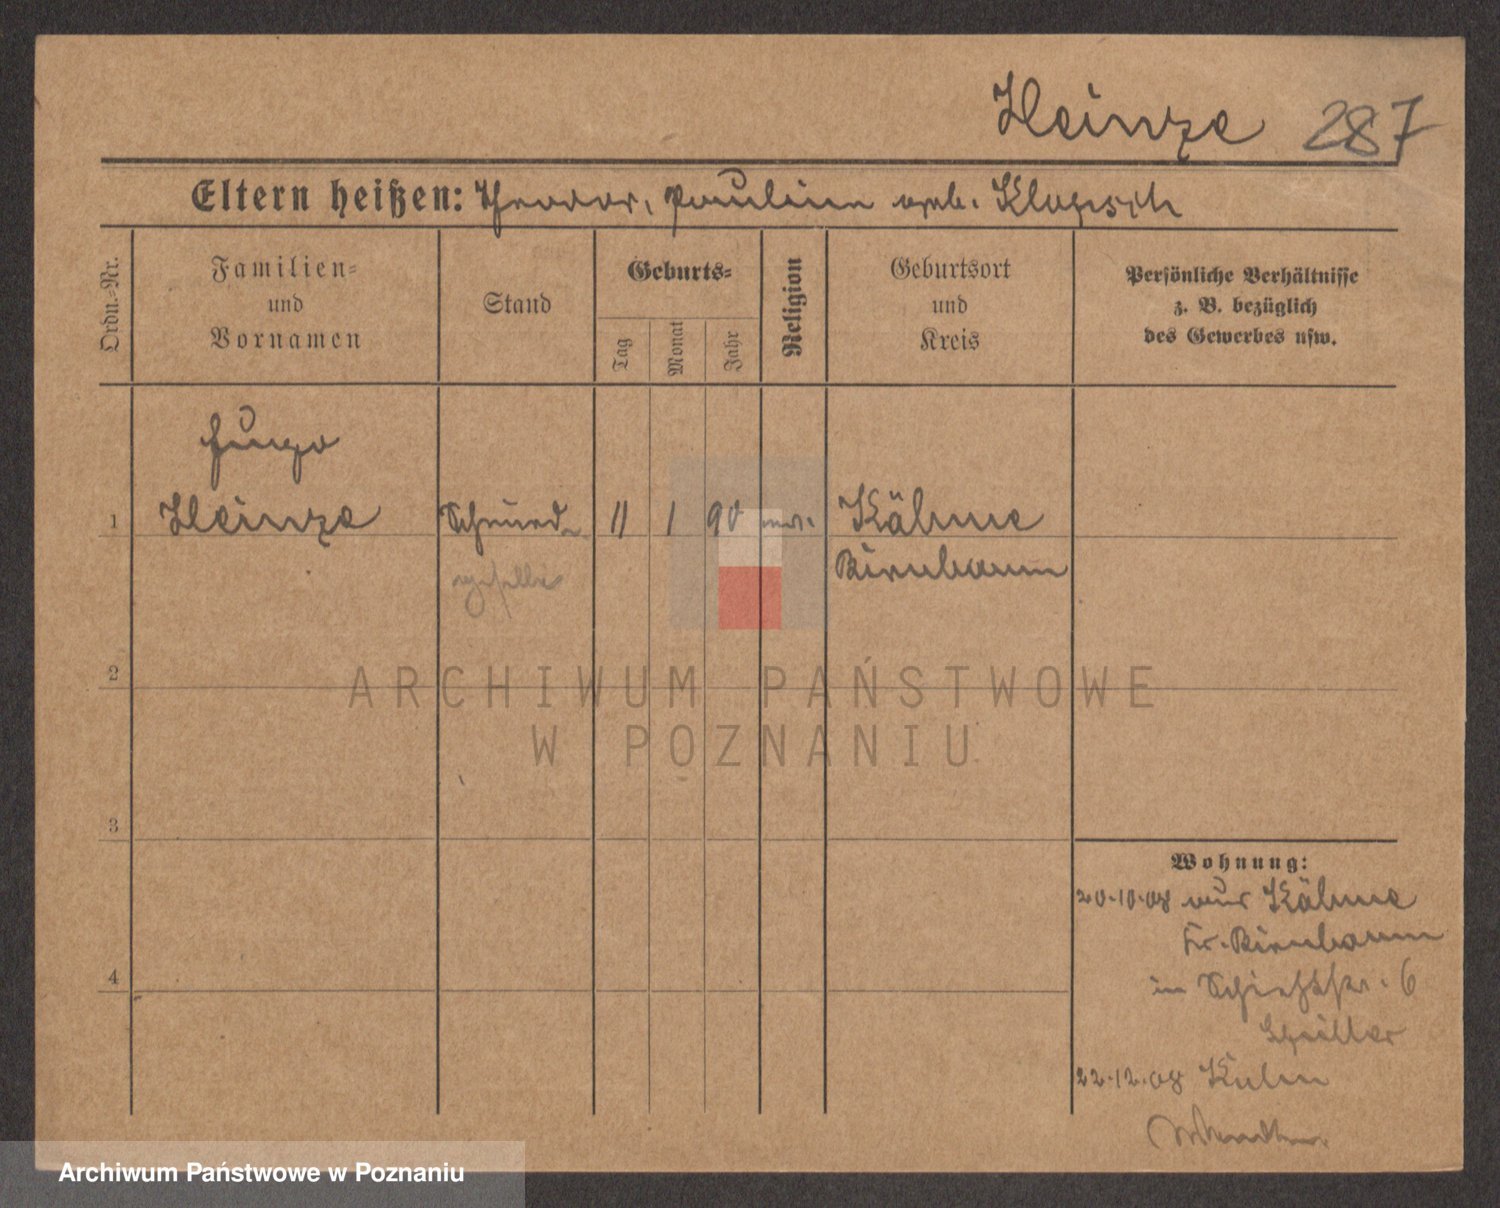 Heinze 287
Eltern heißen: Theodor, Pauline geb. Klopsch
Ordn.-Nr.
Familien-
und
Vornamen
Stand
Geburts-
Tag
Monat
Jahr
Religion
Geburtsort
und
Kreis
Persönliche Verhältnisse
z. B. bezüglich
des Gewerbes usw.
Hugo
1 Heinze Schmiede 11 1 90 Kähme
geselle Birnbaum
2
3
4
Wohnung:
20.10.08 aus Kähme
Kr. Birnbaum
in 6
22.12.08
ARCHIWUM PAŃSTWOWE
W POZNANIU
Archiwum Państwowe w Poznaniu